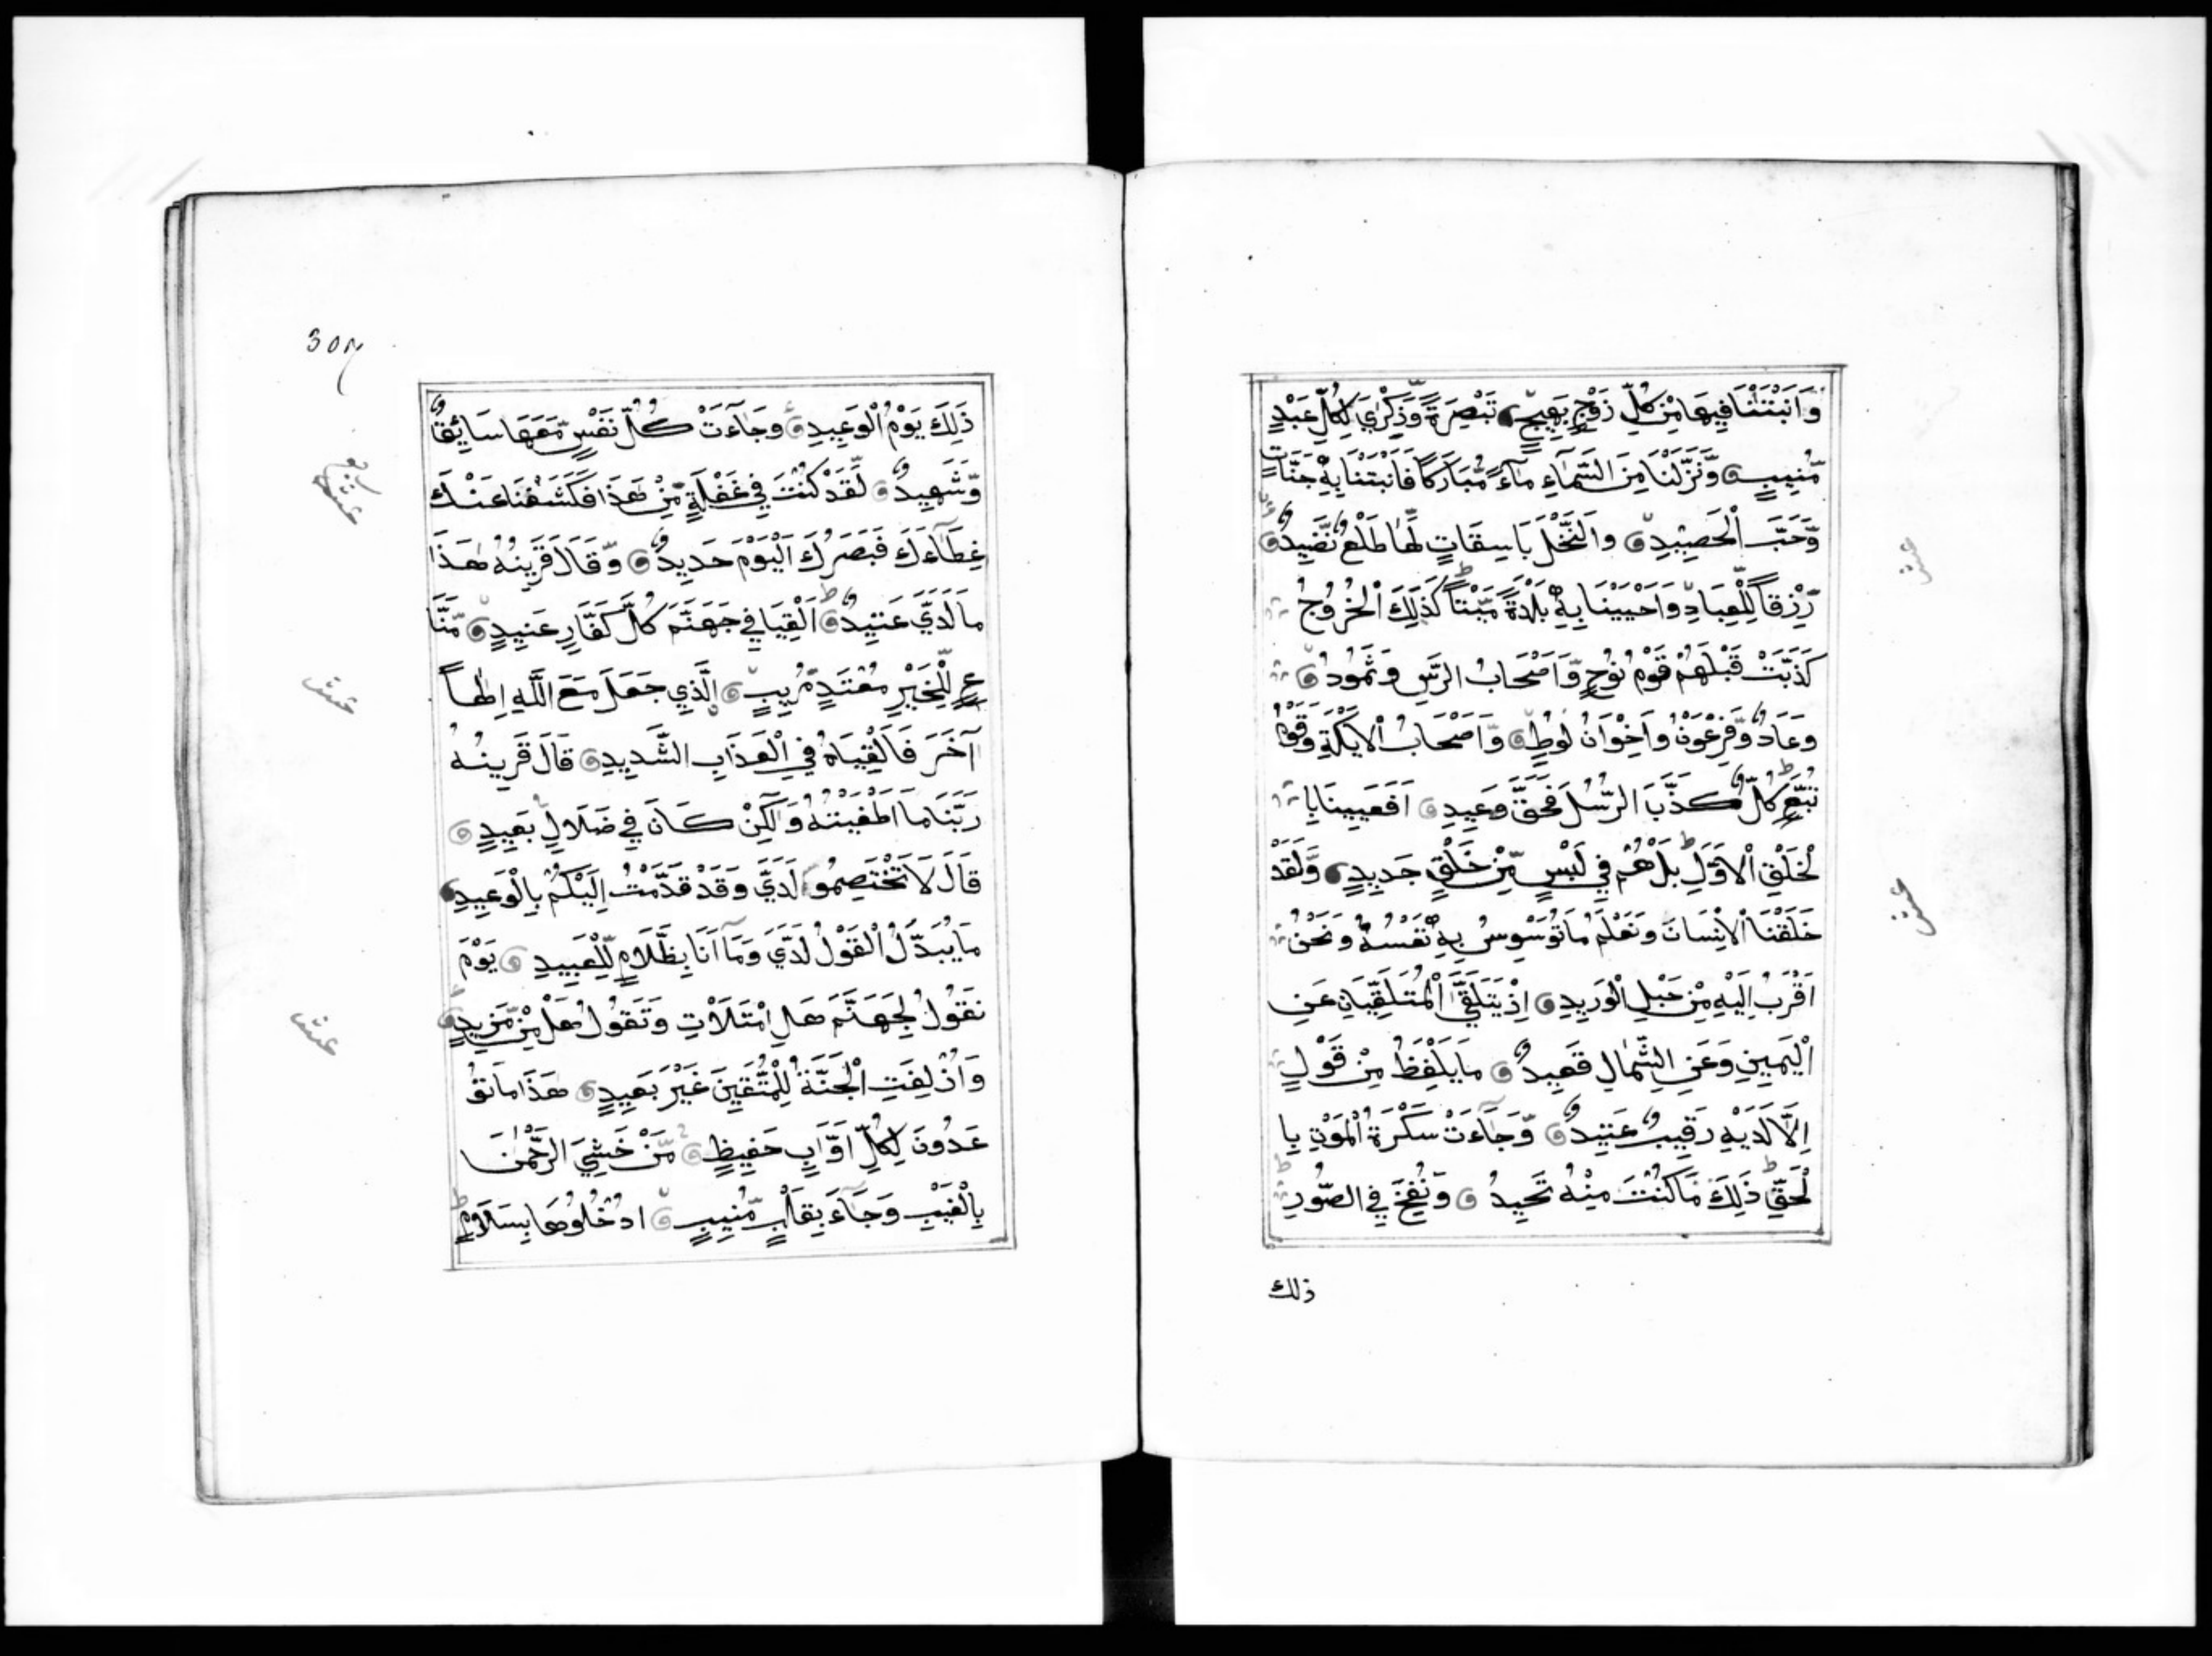 وَاَنْبَتْنَا فِيهَا مِنْ كُلِّ زَوْجٍ بَهِيجٍ تَبْصِرَةً وَّذِكْرٰي لِكُلِّ عَبْدٍ
مُّنِيبٍ وَّنَزَّلْنَا مِنَ السَّمَآءِ مَآءً مُّبَارَكًا فَاَنْبَتْنَا بِهٖ جَنَّاتٍ
وَّحَبَّ الْحَصِيدِ وَالنَّخْلَ بَاسِقَاتٍ لَّهَا طَلْعٌ نَّضِيدٌ
رِّزْقًا لِّلْعِبَادِ وَاَحْيَيْنَا بِهٖ بَلْدَةً مَّيْتًا كَذَلِكَ الْخُرُوجُ
كَذَّبَتْ قَبْلَهُمْ قَوْمُ نُوحٍ وَّاَصْحَابُ الرَّسِّ وَثَمُودُ
وَعَادٌ وَّفِرْعَوْنُ وَاِخْوَانُ لُوطٍ وَّاَصْحَابُ الْاَيْكَةِ وَقَوْمُ
تُبَّعٍ كُلٌّ كَذَّبَ الرُّسُلَ فَحَقَّ وَعِيدِ اَفَعَيِينَا بِا
لْخَلْقِ الْاَوَّلِ بَلْ هُمْ فِي لَبْسٍ مِّنْ خَلْقٍ جَدِيدٍ وَّلَقَدْ
خَلَقْنَا الْاِنْسَانَ وَنَعْلَمُ مَا تُوَسْوِسُ بِهٖ نَفْسُهُ وَنَحْنُ
اَقْرَبُ اِلَيْهِ مِنْ حَبْلِ الْوَرِيدِ اِذْ يَتَلَقَّي الْمُتَلَقِّيَانِ عَنِ
الْيَمِينِ وَعَنِ الشِّمَالِ قَعِيدٌ مَا يَلْفِظُ مِنْ قَوْلٍ
اِلَّا لَدَيْهِ رَقِيبٌ عَتِيدٌ وَّجَآءَتْ سَكْرَةُ الْمَوْتِ بِا
لْحَقِّ ذَلِكَ مَا كُنْتَ مِنْهُ تَحِيدُ وَنُفِخَ فِي الصُّورِ
ذلك
عشر
عشر
ذَلِكَ يَوْمُ الْوَعِيدِ وَجَآءَتْ كُلُّ نَفْسٍ مَّعَهَا سَائِقٌ
وَّشَهِيدٌ لَّقَدْ كُنْتَ فِي غَفْلَةٍ مِّنْ هَذَا فَكَشَفْنَا عَنْكَ
غِطَآءَكَ فَبَصَرُكَ الْيَوْمَ حَدِيدٌ وَّقَالَ قَرِينُهُ هَذَا
مَا لَدَيَّ عَتِيدٌ اَلْقِيَا فِي جَهَنَّمَ كُلَّ كَفَّارٍ عَنِيدٍ مَّنَّا
عٍ لِّلْخَيْرِ مُعْتَدٍ مُّرِيبٍ اِلَّذِي جَعَلَ مَعَ اللَّهِ اِلٰهًا
آخَرَ فَاَلْقِيَاهُ فِي الْعَذَابِ الشَّدِيدِ قَالَ قَرِينُهُ
رَبَّنَا مَا اَطْغَيْتُهُ وَلَكِنْ كَانَ فِي ضَلَالٍ بَعِيدٍ
قَالَ لَا تَخْتَصِمُوا لَدَيَّ وَقَدْ قَدَّمْتُ اِلَيْكُمْ بِالْوَعِيدِ
مَا يُبَدَّلُ الْقَوْلُ لَدَيَّ وَمَآ اَنَا بِظَلَّامٍ لِّلْعَبِيدِ يَوْمَ
نَقُولُ لِجَهَنَّمَ هَلِ امْتَلَاْتِ وَتَقُولُ هَلْ مِنْ مَّزِيدٍ
وَاُزْلِفَتِ الْجَنَّةُ لِلْمُتَّقِينَ غَيْرَ بَعِيدٍ هَذَا مَا تُو
عَدُونَ لِكُلِّ اَوَّابٍ حَفِيظٍ مَّنْ خَشِيَ الرَّحْمٰنَ
بِالْغَيْبِ وَجَآءَ بِقَلْبٍ مُّنِيبٍ ادْخُلُوهَا بِسَلَامٍ
عشر
عشر
عشر